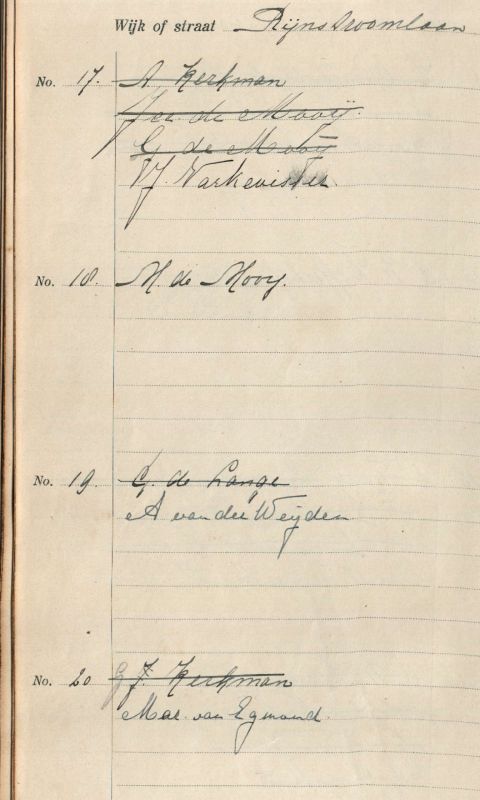 Wijk of straat Rijnstroomlaan
No. 17. A. Kerkman
Jac. de Mooij.
G. de Mooij
W.J. Varkevisser
No. 18. M. de Mooy.
No. 19. G. de Lange
A van der Weijden
No. 20. G J. Kerkman
Mar. van Egmond.